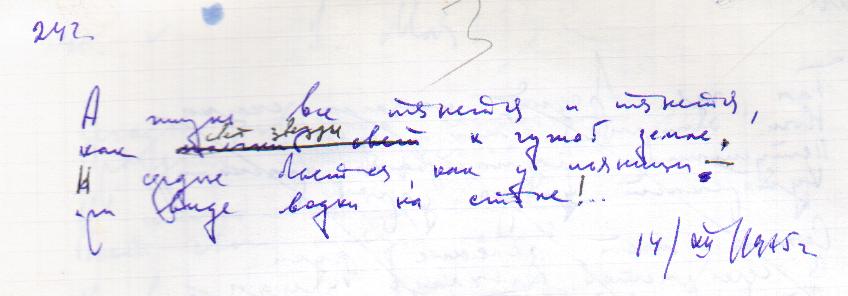 242
3
А жизнь все тянется и тянется,
свет звезды
как свет к чужой земле.
И сердце бьется, как у пьяницы —
при виде водки на столе!..
14/XII/1975г